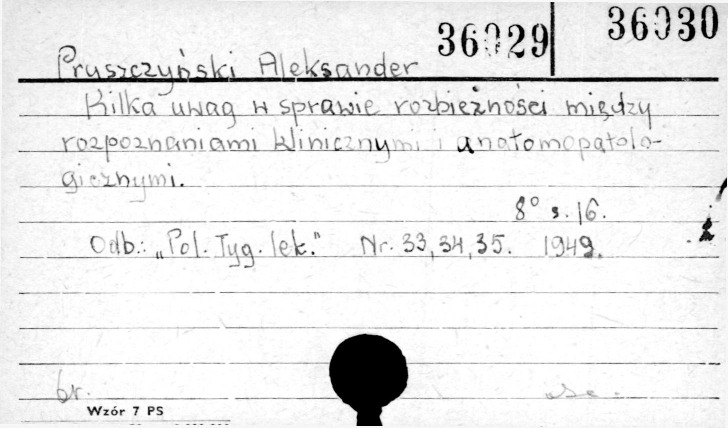 36029 36030
Pruszczyński Aleksander
Kilka uwag w sprawie rozbieżności między
rozpoznaniami klinicznymi i anatomopatolo-
gicznymi.
8° s. 16.
Odb.: „Pol. Tyg. lek." Nr. 33, 34, 35. 1949.
br.
Wzór 7 PS